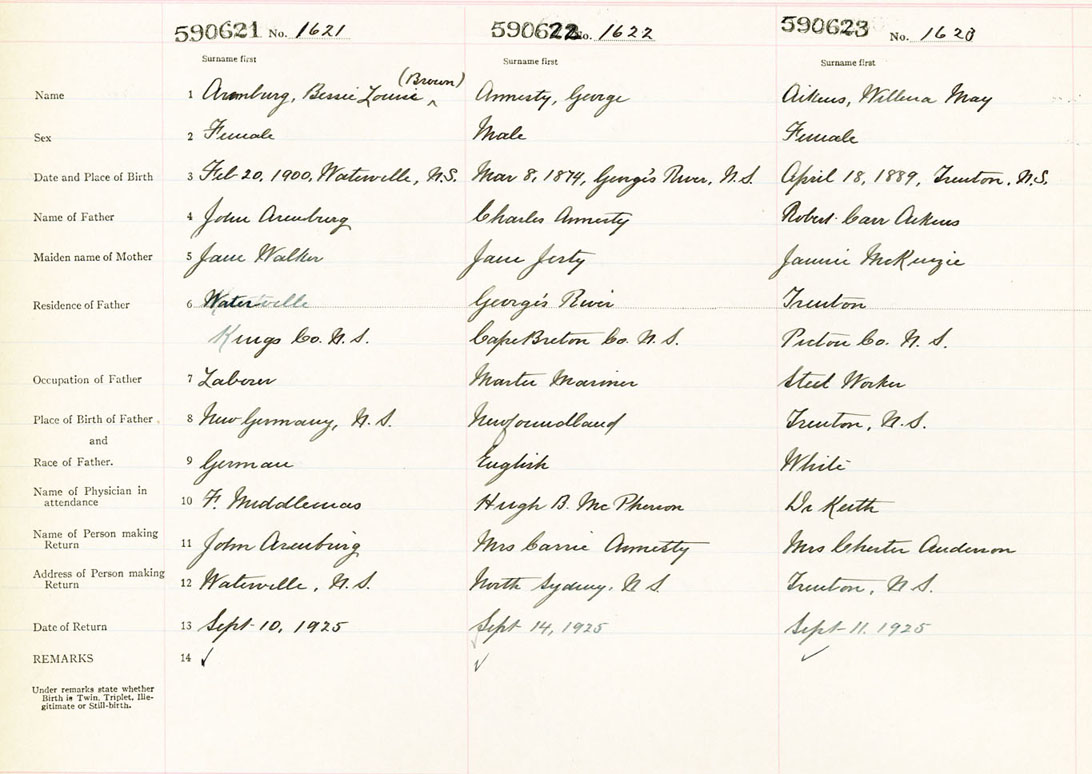 590621 No. 1621 590622 No. 1622 590623 No. 1623
Surname first Surname first Surname first
(Brown)
Name 1 Arenburg, Bessie Louise ^ Amnesty, George Aikens, Willena May
Sex 2 Female Male Female
Date and Place of Birth 3 Feb 20, 1900, Waterville, N.S. Mar 8, 1874, George's River, N.S. April 18, 1889, Trenton, N.S.
Name of Father 4 John Arenburg Charles Amnesty Robert Carr Aikens
Maiden name of Mother 5 Jane Walker Jane Jerty Jannie McKenzie
Residence of Father 6 Waterville George's River Trenton
Kings Co. N.S. Cape Breton Co. N.S. Pictou Co. N.S.
Occupation of Father 7 Laborer Master Mariner Steel Worker
Place of Birth of Father 8 New Germany, N.S. Newfoundland Trenton, N.S.
and
Race of Father. 9 German English White
Name of Physician in
attendance 10 F. Middlemas Hugh B. McPherson Dr Keith
Name of Person making
Return 11 John Arenburg Mrs Carrie Amnesty Mrs Chester Anderson
Address of Person making
Return 12 Waterville, N.S. North Sydney, N.S. Trenton, N.S.
Date of Return 13 Sept 10, 1925 Sept 14, 1925 Sept 11, 1925
REMARKS 14 ✓ ✓ ✓
Under remarks state whether
Birth is Twin, Triplet, Ille-
gitimate or Still-birth.